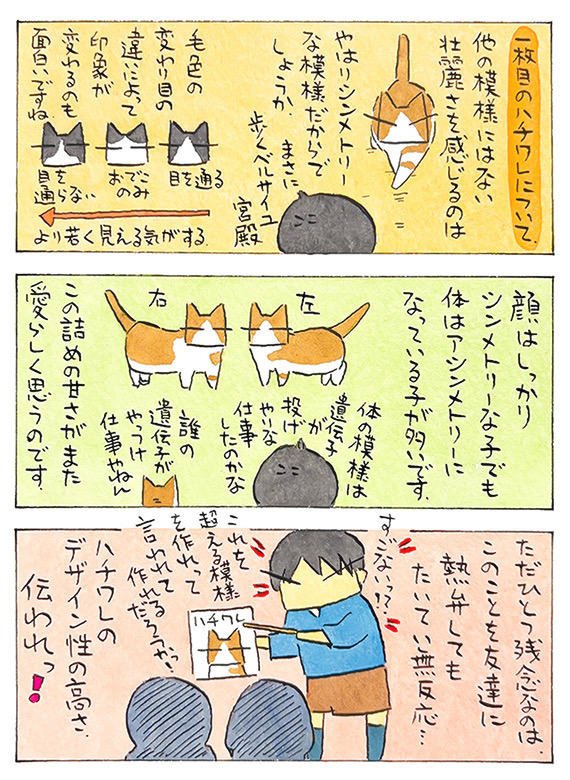 一枚目のハチワレについて。
他の模様にはない
壮麗さを感じるのは
やはりシンメトリー
な模様だからで
しょうか。
まさに
歩くベルサイユ
宮殿
毛色の
変わり目の
違いによって
印象が
変わるのも
面白いですね。
目を通る
おでこ
のみ
目を
通らない
より若く見える気がする。
顔はしっかり
シンメトリーな子でも
体はアシンメトリーに
なっている子が多いです。
左
右
体の模様は
遺伝子
が
投げ
やりな
仕事
したのかな
誰の
遺伝子が
やっつけ
仕事やねん
この詰めの甘さがまた
愛らしく思うのです。
ただひとつ残念なのは、
このことを友達に
熱弁しても
たいてい無反応…
すごないっ?!
これを
超える模様
を作れって
言われて
作れるだろうか?!
ハチワレ
ハチワレの
デザイン性の高さ、
伝われっ!